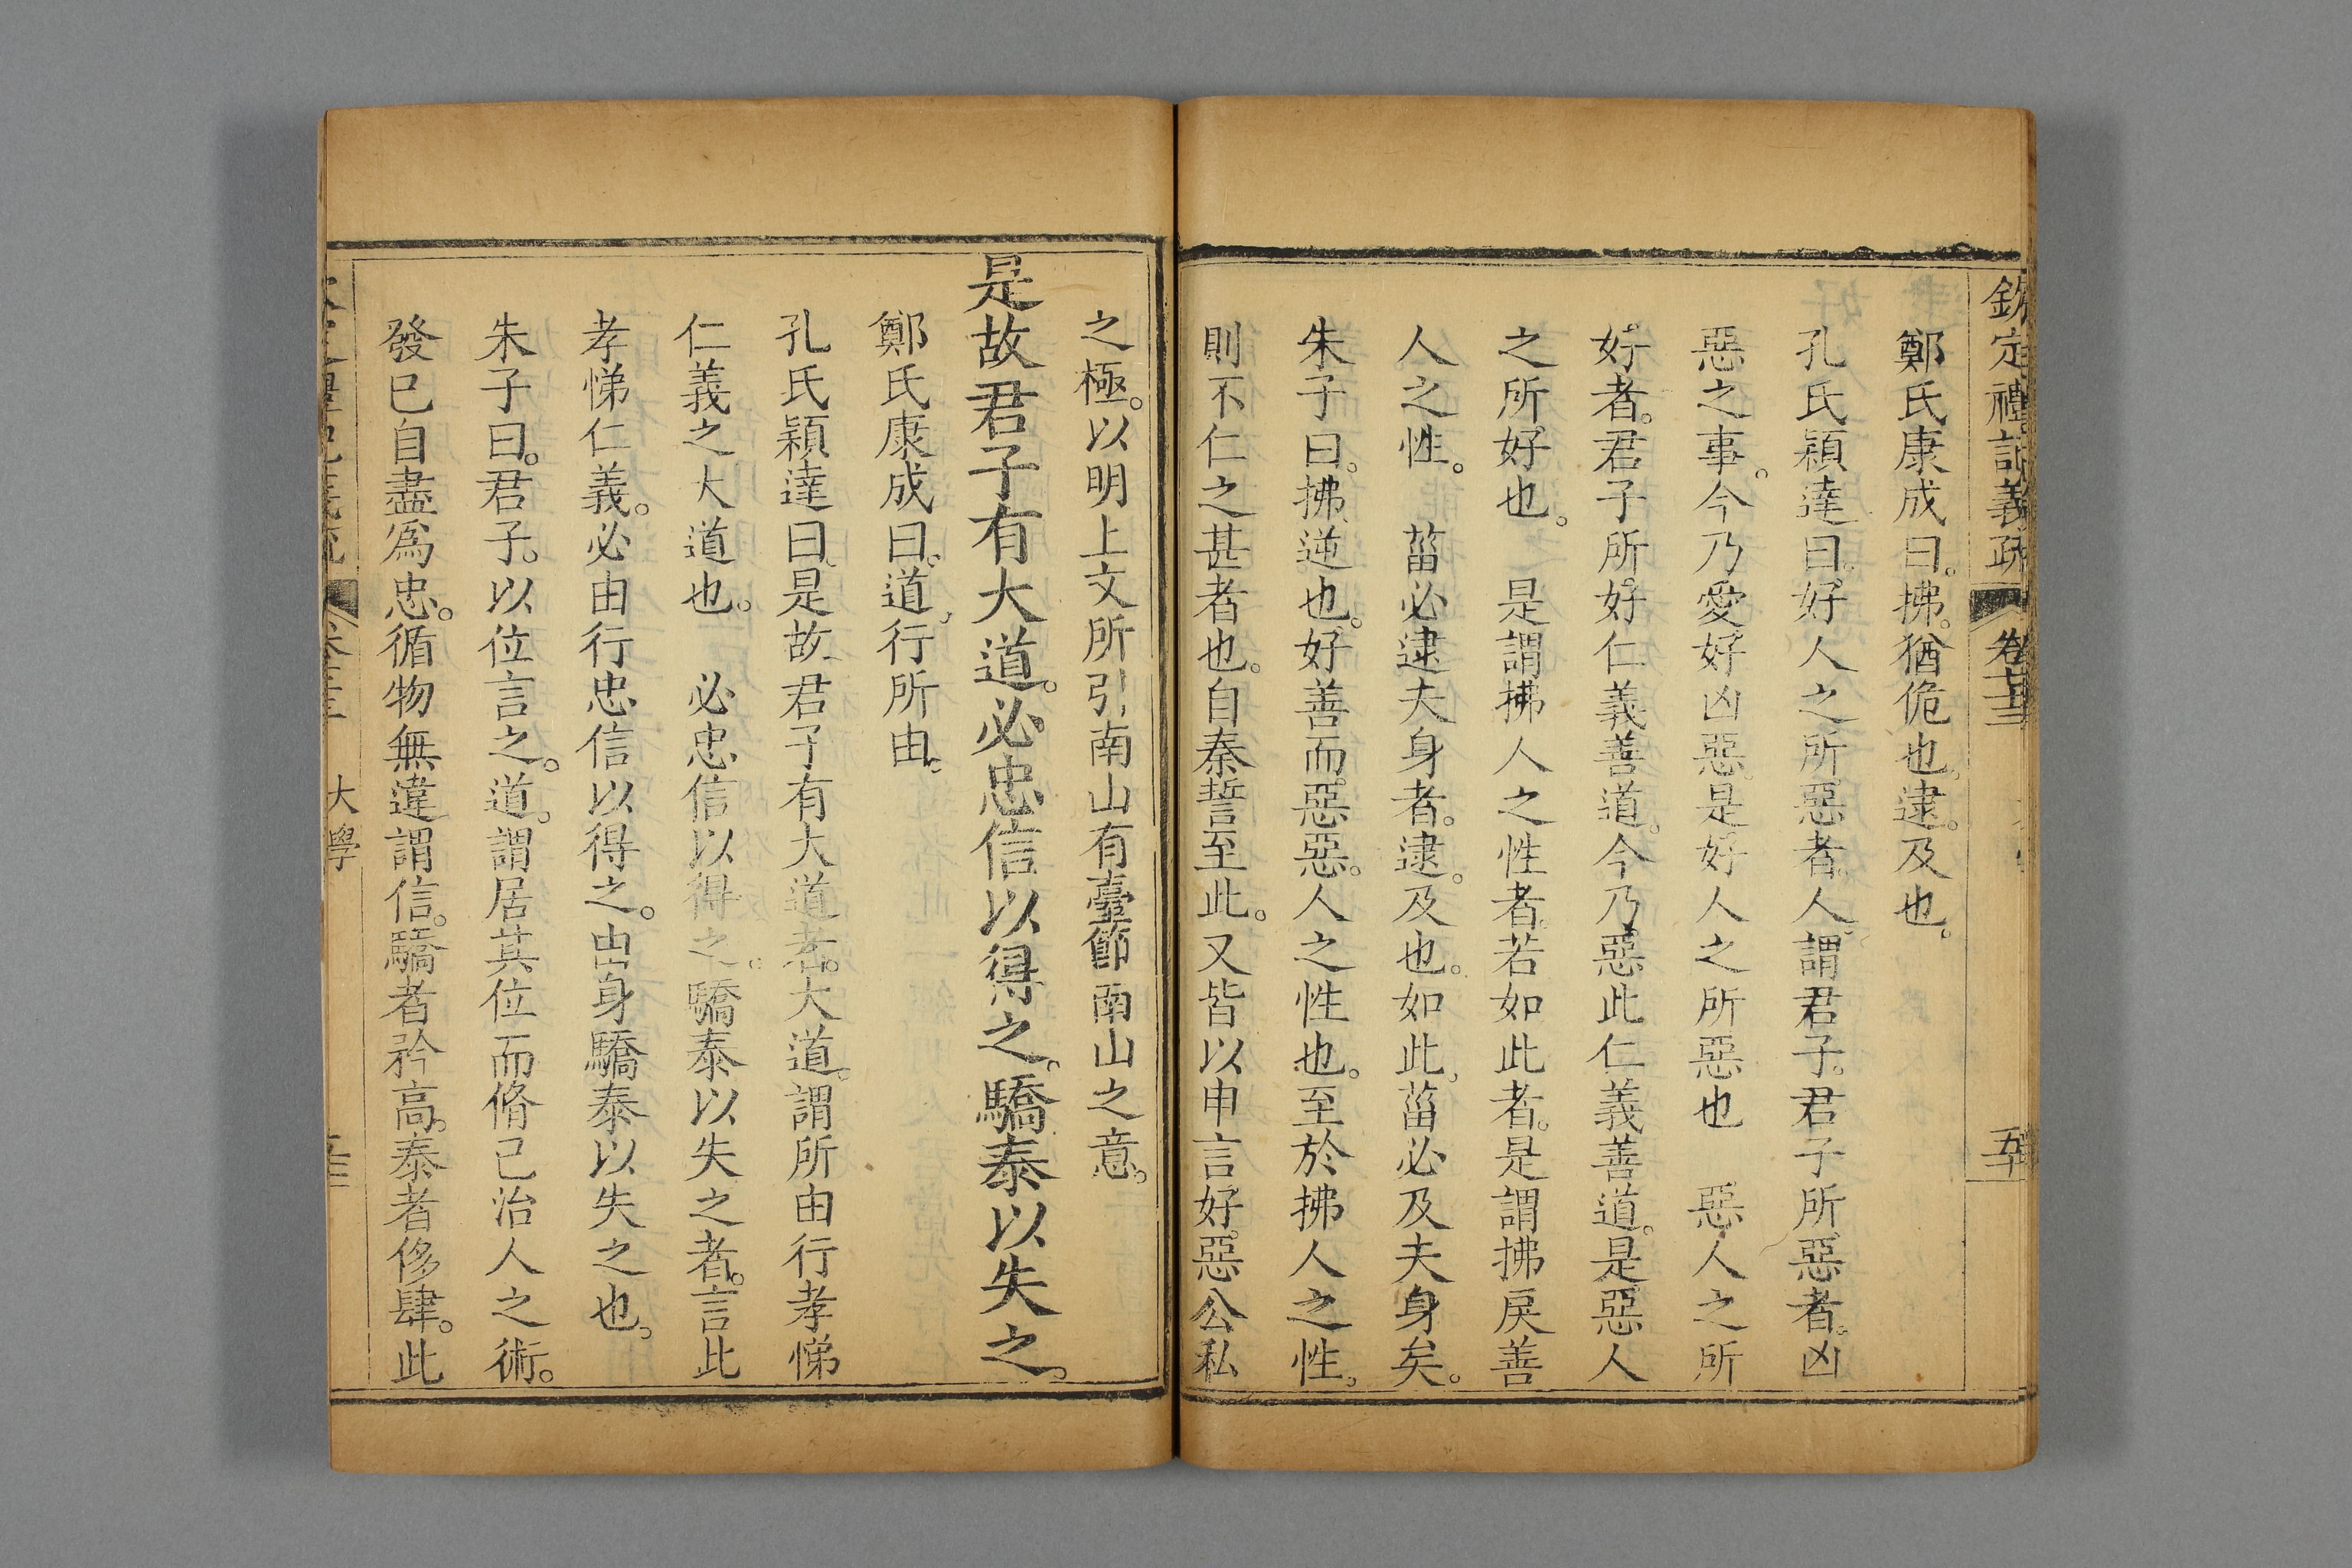 欽定禮記義疏 卷七十三 五十
鄭氏康成曰。拂。猶佹也。逮。及也。
孔氏穎達曰。好人之所惡者。人。謂君子。君子所惡者。凶
惡之事。今乃愛好凶惡。是好人之所惡也 惡人之所
好者。君子所好仁義善道。今乃惡此仁義善道。是惡人
之所好也。 是謂拂人之性者。若如此者。是謂拂戾善
人之性。 菑必逮夫身者。逮。及也。如此。菑必及夫身矣。
朱子曰。拂。逆也。好善而惡惡。人之性也。至於拂人之性。
則不仁之甚者也。自秦誓至此。又皆以申言好惡公私
之極。以明上文所引南山有臺節南山之意。
是故君子有大道。必忠信以得之。驕泰以失之。
鄭氏康成曰。道。行所由。
孔氏穎達曰。是故君子有大道者。大道。謂所由行孝悌
仁義之大道也。 必忠信以得之。驕泰以失之者。言此
孝悌仁義。必由行忠信以得之。由身驕泰以失之也。
朱子曰。君子。以位言之。道。謂居其位而脩己治人之術。
發已自盡爲忠。循物無違謂信。驕者矜高。泰者侈肆。此
大學